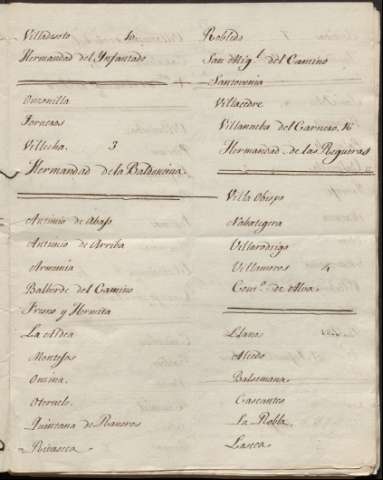 Villadesoto 10.
Hermandad del Ynfantado
Onzonilla
Torneros
Villecha. 3
Hermandad de la Baldoncina.
Antimio de Abajo
Antimio de Arriba
Armunia
Balberde del Camino
Fresno y Hermita
La Aldea
Montejos
Onzina.
Oteruelo
Quintana de Raneros
Ribaseca
Robledo
San Mig.l del Camino
Santovenia
Villacedre
Villanueba del Carnero. 16
Hermandad de las Regueras
Villa Obispo
Nabategera
Villarodrigo
Villamoros 4
Con.o de Alva.
Llanos
Alcedo
Balsemana
Cascantes
La Robla.
Laseca